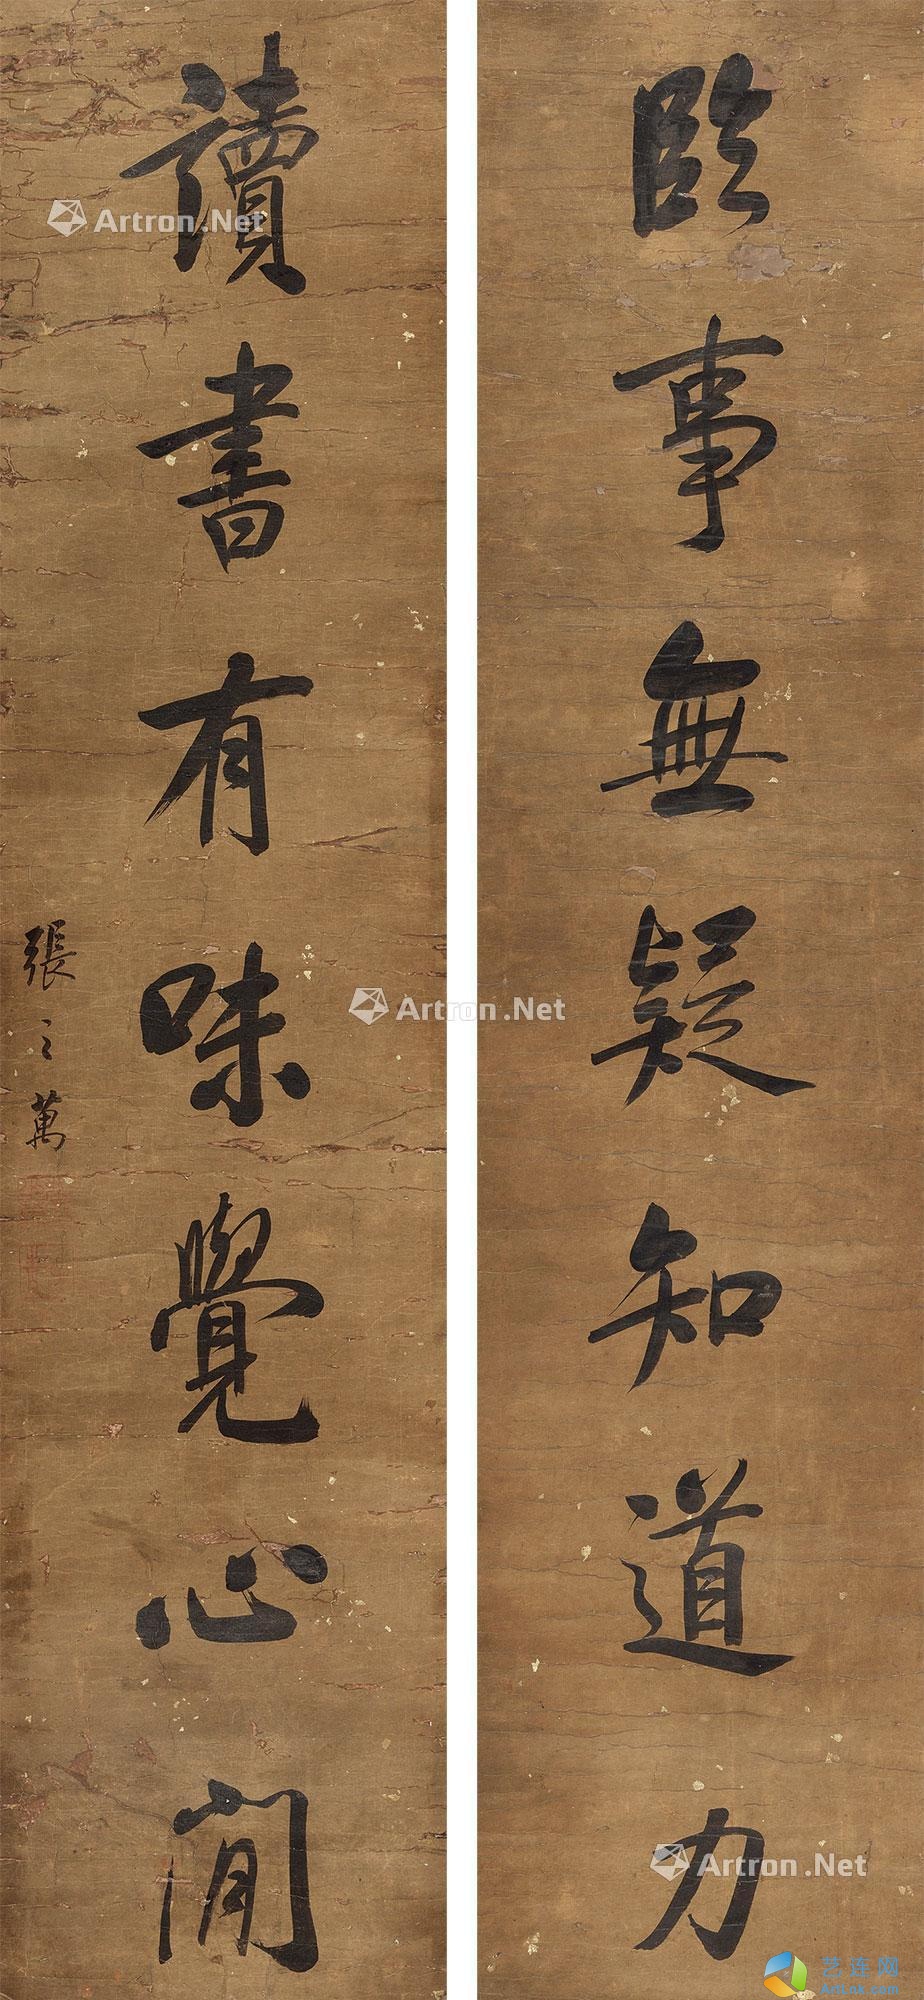 臨事無疑知道力
讀書有味覺心閒
張之萬
Artron.Net
Artron.Net
Artron.Net
艺连网
ArtLnk.com